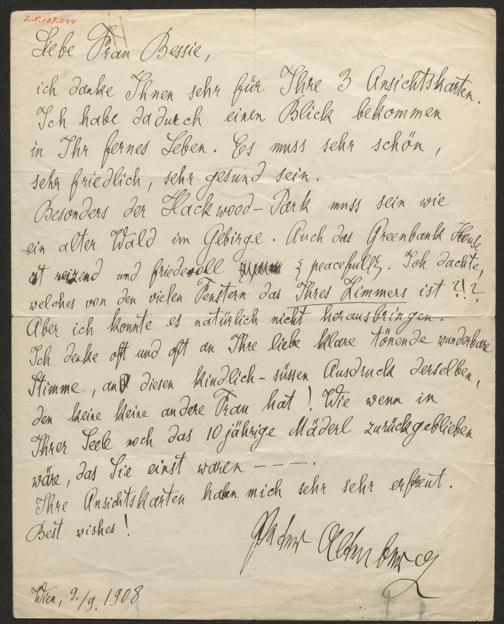 J.N. 127.044
Liebe Frau Bessie,
ich danke Ihnen sehr für Ihre 3 Ansichtskarten.
Ich habe dadurch einen Blick bekommen
in Ihr fernes Leben. Es muss sehr schön,
sehr friedlich, sehr gesund sein.
Besonders der Hackwood-Park muss sein wie
ein alter Wald im Gebirge. Auch das Greenbank House
ist reizend und friedevoll & peacefully. Ich dachte,
welches von den vielen Fenstern das Ihres Zimmers ist?!?
Aber ich konnte es natürlich nicht herausbringen.
Ich denke oft und oft an Ihre liebe klare tönende wunderbare
Stimme, an diesen kindlich-süssen Ausdruck derselben,
den keine keine andere Frau hat! Wie wenn in
Ihrer Seele noch das 10 jährige Mäderl zurückgeblieben
wäre, das Sie einst waren ----.
Ihre Ansichtskarten haben mich sehr sehr erfreut.
Best wishes!
Peter Altenberg
Wien, 9./9. 1908